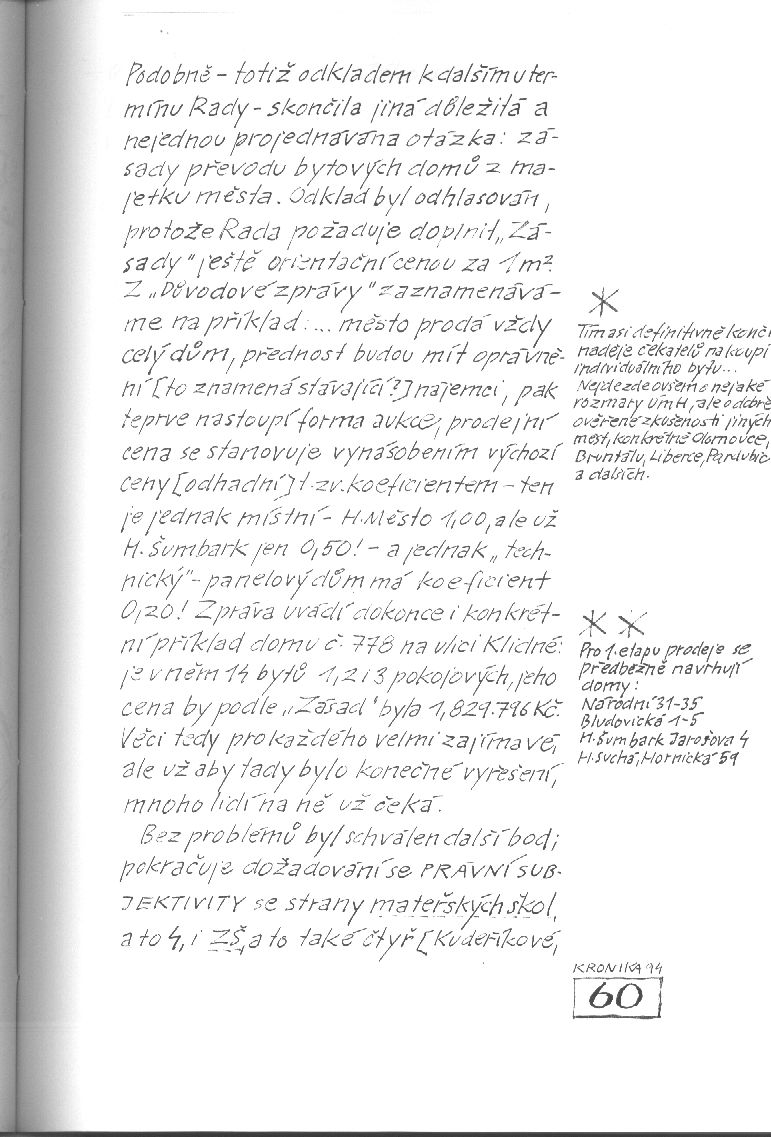 Podobně – totiž odkladem k dalšímu ter-
mínu Rady – skončila jiná důležitá a
nejednou projednávána otázka: zá-
sady převodu bytových domů z ma-
jetku města. Odklad byl odhlasován,
protože Rada požaduje doplnit „Zá-
sady" ještě orientační cenou za 1m².
Z „Důvodové zprávy" zaznamenává-
me na příklad: ... město prodá vždy
celý dům, přednost budou mít oprávně-
ní [to znamená stávající?] nájemci, pak
teprve nastoupí forma aukce; prodejní
cena se stanovuje vynásobením výchozí
ceny [odhadní] t.zv. koeficientem – ten
je jednak místní – H.Město 1,00, ale už
H. Šumbark jen 0,50! – a jednak „tech-
nický" – panelový dům má koeficient
0,20! Zpráva uvádí dokonce i konkrét-
ní příklad domu č. 778 na ulici Klidné:
je v něm 14 bytů 1, 2 i 3 pokojových, jeho
cena by podle „Zásad" byla 1,829.796 Kč.
Věci tedy pro každého velmi zajímavé,
ale už aby tady bylo konečné vyřešení,
mnoho lidí na ně už čeká.
Bez problémů byl schválen další bod;
pokračuje dožadování se PRÁVNÍ SUB-
JEKTIVITY se strany mateřských škol,
a to 4, i ZŠ, a to také čtyř [Kudeříkové,
*
Tím asi definitivně končí
naděje čekatelů na koupi
individuálního bytu...
Nejde zde ovšem o nějaké
rozmary ÚmH, ale o dobře
ověřené zkušenosti jiných
měst, konkrétně Olomouce,
Bruntálu, Liberce, Pardubic
a dalších.
* *
Pro 1. etapu prodeje se
předběžně navrhují
domy:
Národní 31-35
Bludovická 1-5
H. Šumbark Jarošova 4
H. Suchá, Hornická 59
KRONIKA 94
60